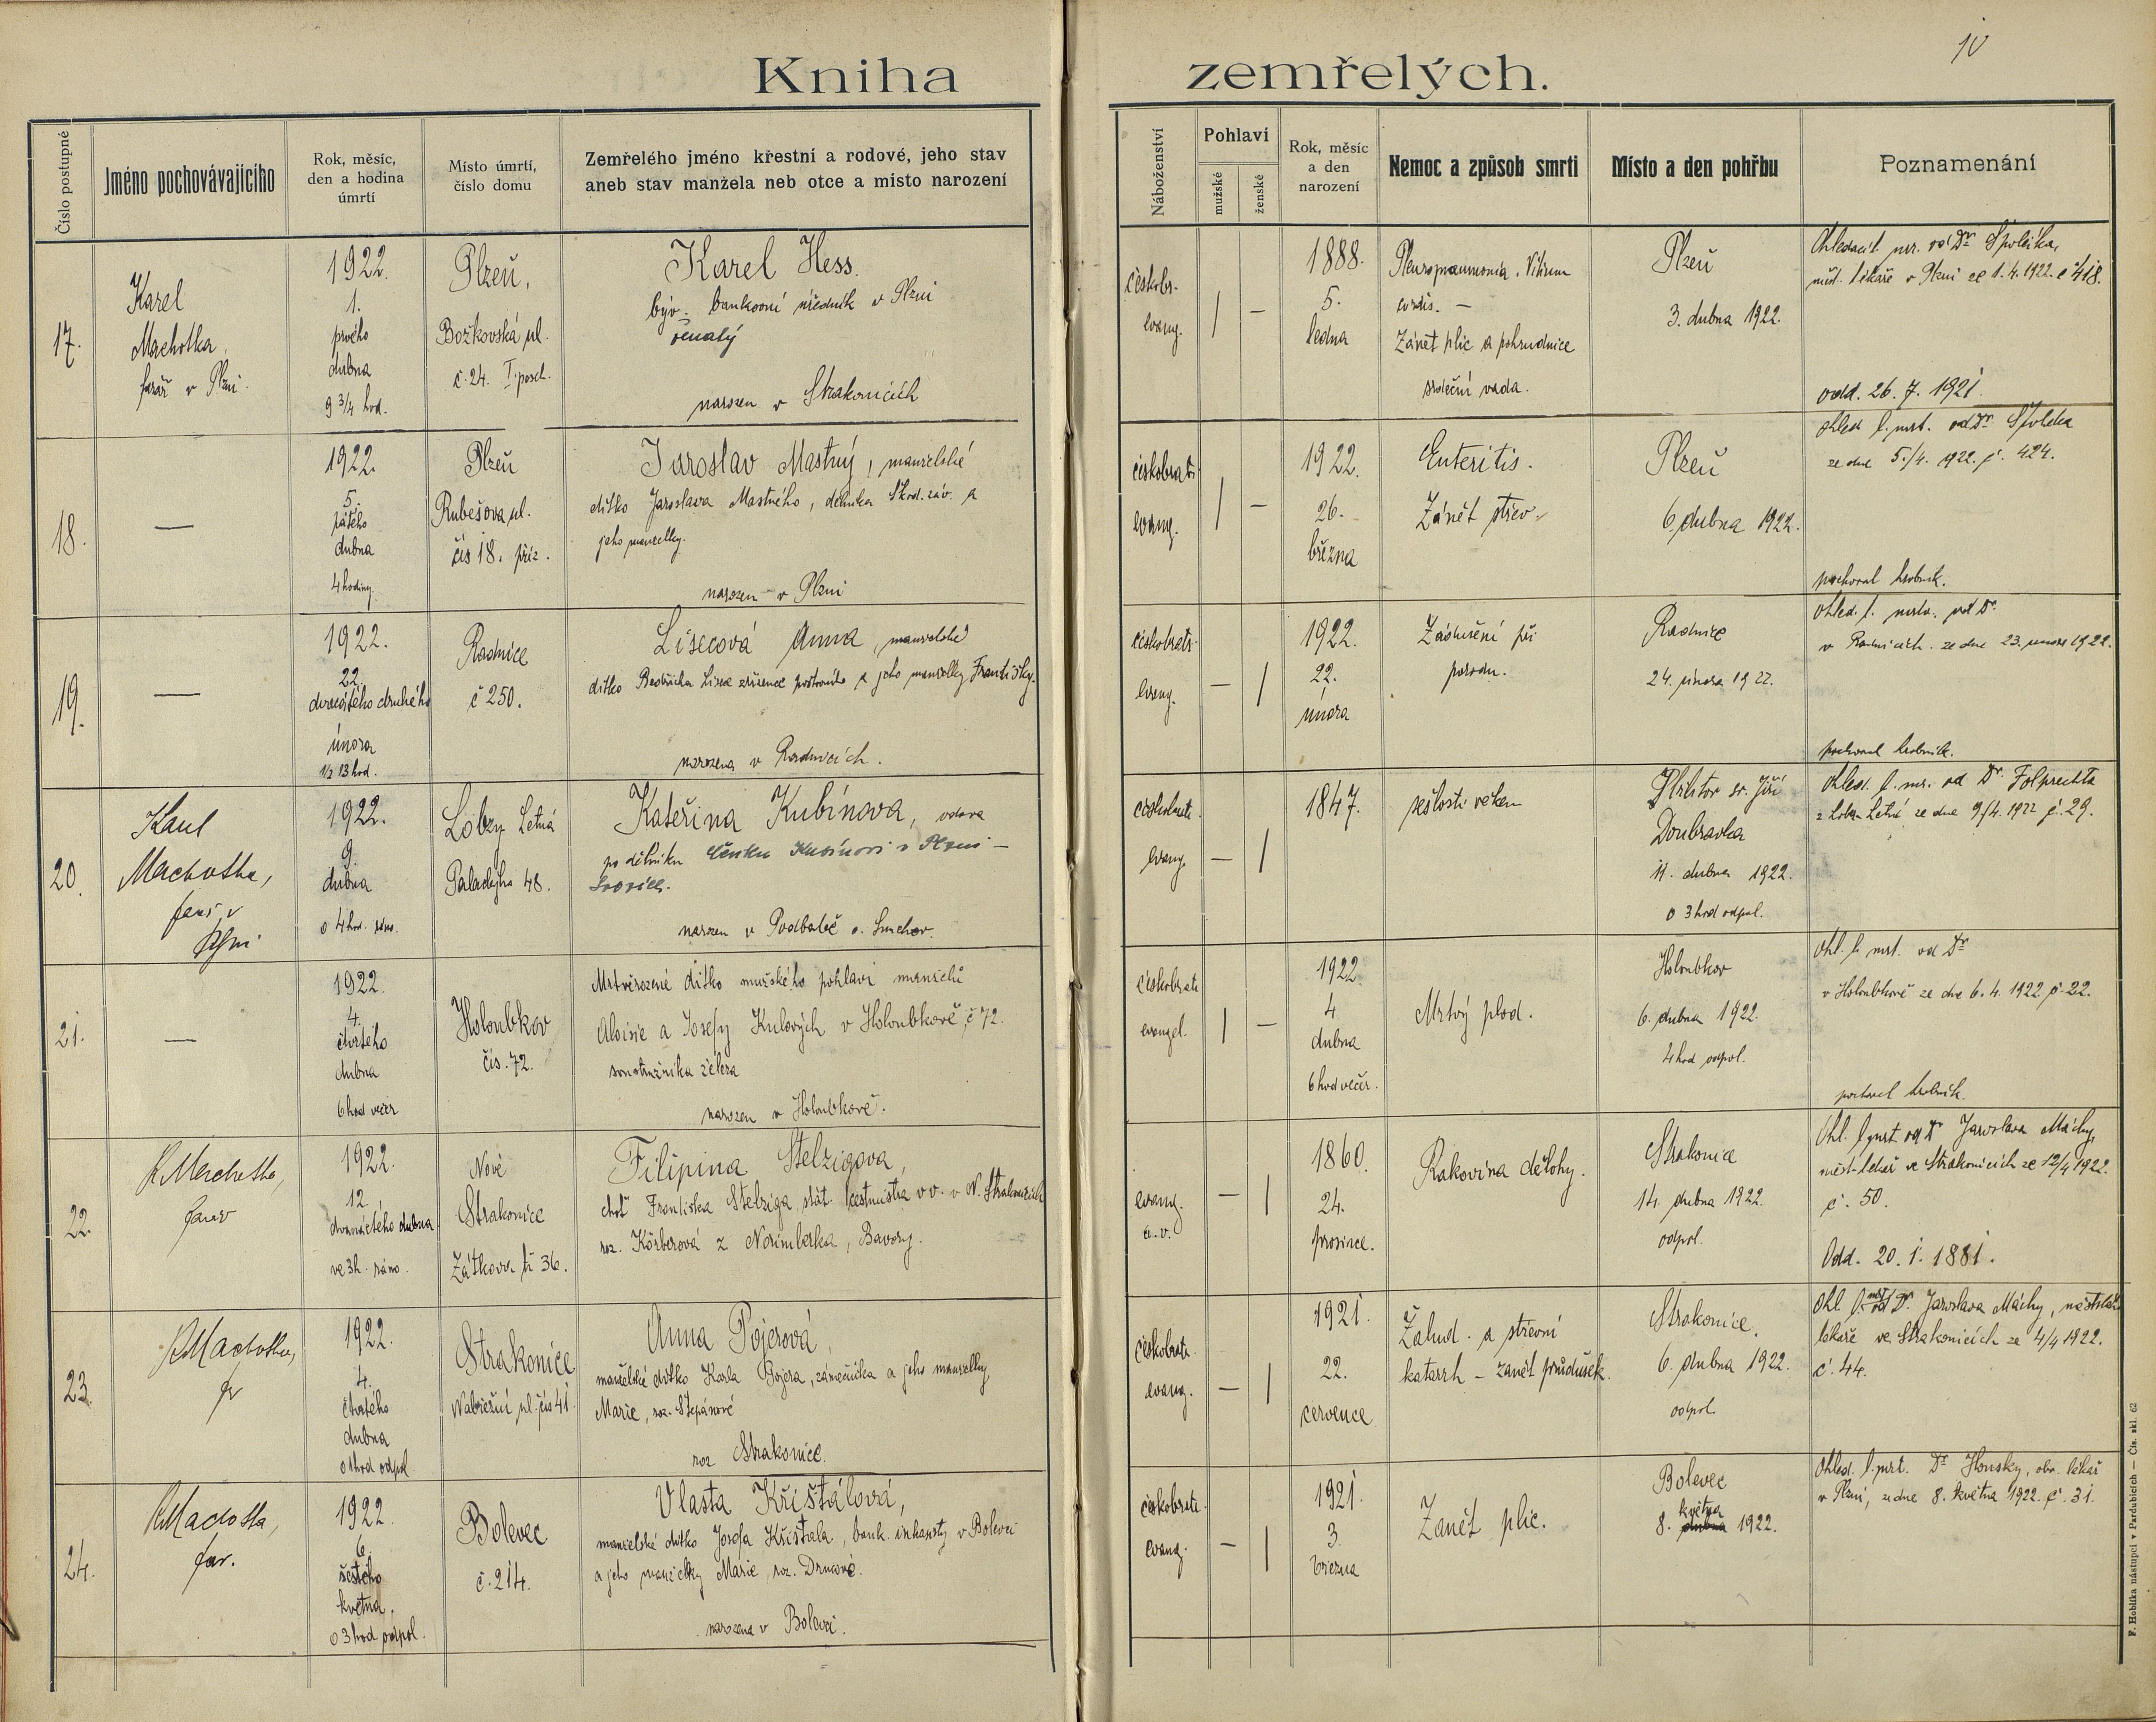 10
Kniha zemřelých.
Číslo postupné
Jméno pochovávajícího
Rok, měsíc,
den a hodina
úmrtí
Místo úmrtí,
číslo domu
Zemřelého jméno křestní a rodové, jeho stav
aneb stav manžela neb otce a místo narození
Náboženství
Pohlaví
mužské
ženské
Rok, měsíc
a den
narození
Nemoc a způsob smrti
Místo a den pohřbu
Poznamenání
17.
Karel
Machotka,
farář v Plzni.
1922.
1.
prvého
dubna
9 3/4 hod.
Plzeň,
Božkovská ul.
č. 24. I. posch.
Karel Hess.
býv. bankovní úředník v Plzni
ženatý
narozen v Strakonicích
českobr.
evang.
/
—
1888.
5.
ledna
Pleuropneumonia. Vitium
cordis. —
Zánět plic a pohrudnice
srdeční vada.
Plzeň
3. dubna 1922.
Ohledací l. mr. od Dr
měst. lékaře v Plzni ze 1. 4. 1922. č 418.
odd. 26. 7. 1921.
18.
—
1922.
5.
pátého
dubna
4 hodiny.
Plzeň
Rubešova ul.
čís 18. příz.
Jaroslav Mastný, manželské
dítko Jaroslava Mastného, dělníka Škod. záv. a
jeho manželky.
narozen v Plzni
českobratr.
evang.
/
—
1922.
26.
března
Enteritis.
Zánět střev.
Plzeň
6. dubna 1922.
ohled l. mrt. od Dr
ze dne 5./4. 1922. č. 424.
pochoval hrobník.
19.
—
1922.
22.
dvacátého druhého
února
1/2 13 hod.
Radnice
č 250.
Lisecová Anna, manželské
dítko Bedřicha Lisce zřízence poštovního a jeho manželky Františky.
narozena v Radnicích.
českobratr.
evang.
—
/
1922.
22.
února
Zadušení při
porodu.
Radnice
24. února 1922.
ohled. l. mrtv. od Dr.
v Radnicích ze dne 23. února 1922.
pochoval hrobník.
20.
Karel
Machotka,
farář v
Plzni
1922.
9.
dubna
o 4 hod. ráno.
Lobzy Letná
Palackého 48.
Kateřina Kubínova, vdova
po dělníku Čeňku Kubínovi v Plzni —
narozen v o. Smíchov.
českobratr.
evang.
—
/
1847.
sešlostí věkem
Hřbitov sv. Jiří
Doubravka
11. dubna 1922.
o 3 hod odpol.
Ohled. l. mr. od Dr. Folprechta
z Lobez Letná ze dne 9./4. 1922 č. 29.
21.
—
1922.
4.
čtvrtého
dubna
6 hod večer
Holoubkov
čís. 72.
Mrtvěrozené dítko mužského pohlaví manželů
Aloisie a Josefy Kulových v Holoubkově, č 72.
soustružníka železa
narozen v Holoubkově.
českobratr
evangel.
/
—
1922
4.
dubna
6 hod večer.
Mrtvý plod.
Holoubkov
6. dubna 1922.
4 hod odpol.
Ohl. l. mrt. od Dr
v Holoubkově ze dne 6. 4. 1922. č. 22.
pochoval hrobník.
22.
K Machotka,
farář
1922.
12.
dvanáctého dubna
ve 3h. ráno.
Nové
Strakonice
Zátkova tř 36.
Filipina Stelzigova,
choť Františka Stelziga, stát. cestmistra v v. v N. Strakonicích
roz. Körberová z Norimberka, Bavory.
evang.
a. v.
—
/
1860.
24.
prosince.
Rakovina dělohy.
Strakonice
14. dubna 1922.
odpol.
Ohl. l. mrt. od Dr Jaroslava Máchy,
měst. lékař ve Strakonicích ze 12/4 1922.
č. 50.
Odd. 20. 1. 1881.
23.
K Machotka,
fr
1922.
4.
čtvrtého
dubna
o 1 hod odpol.
Strakonice
Nábřežní ul. čís 41.
Anna Pojerová,
manželské dítko Karla Pojera, zámečníka a jeho manželky,
Marie, roz. Štěpánové
roz Strakonice.
českobratr.
evang.
—
/
1921.
22.
července
Žalud. a střevní
katarrh — zánět průdušek.
Strakonice.
6. dubna 1922.
odpol.
Ohl. l. mrt. od Dr. Jaroslava Máchy, městského
lékaře ve Strakonicích ze 4/4 1922.
č. 44.
24.
K Machotka,
far.
1922.
6.
šestého
května,
o 3 hod odpol.
Bolevec
č. 214.
Vlasta Křišťálová,
manželské dítko Josefa Křišťála, bank. inkasisty v Bolevci
a jeho manželky Marie, roz.
narozena v Bolevci.
českobratr.
evang.
—
/
1921.
3.
března
Zánět plic.
Bolevec
května
8. dubna 1922.
Ohled. l. mrt. Dr Honsky, obv. lékař
v Plzni, ze dne 8. května 1922. č. 31.
F. Hoblíka nástupci v Pardubicích — Čís. skl. 62